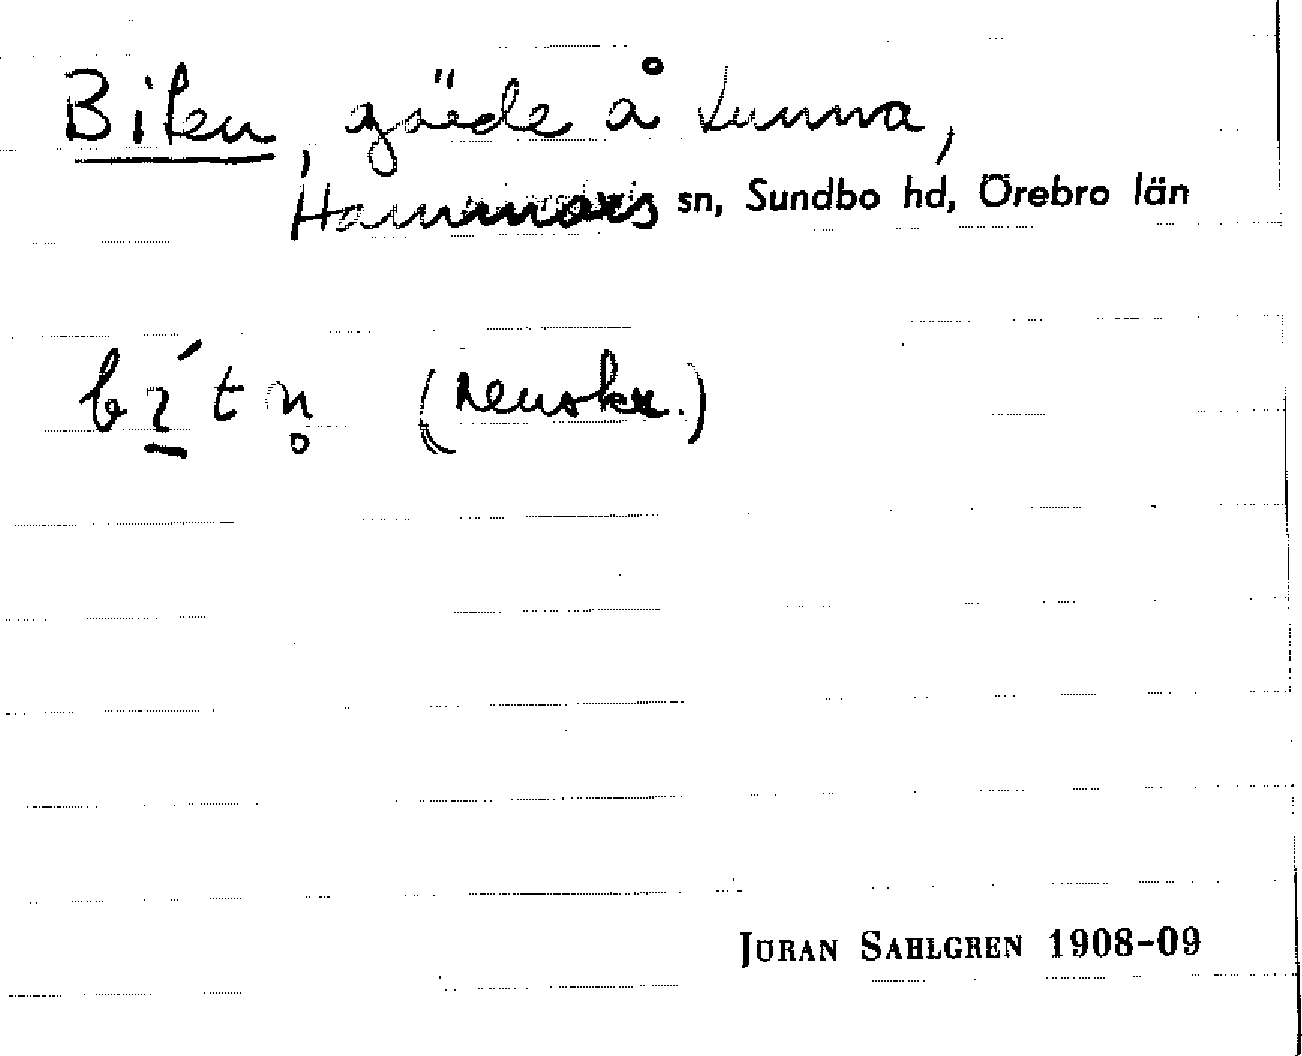 Biten, gärde å Lunna,
Hammars sn, Sundbo hd, Örebro län
bí̠tn̥ (renskr.)
JÖRAN SAHLGREN 1908-09